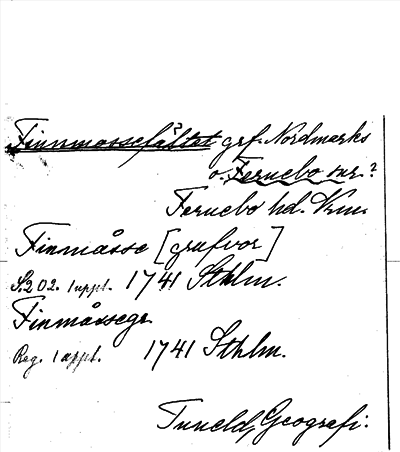 Finnmossefältet grf. Nordmarks
o. Fernebo snr.?
Fernebo hd. Vrm.
Finmåsse [grufvor]
S. 202. 1 uppl. 1741 Sthlm.
Finmåssegr.
Reg. 1 uppl. 1741 Sthlm.
Tuneld, Geografi.